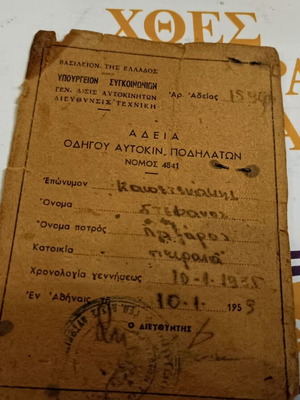 ΧΘΕΣ
ΒΑΣΙΛΕΙΟΝ ΤΗΣ ΕΛΛΑΔΟΣ
ΥΠΟΥΡΓΕΙΟΝ ΣΥΓΚΟΙΝΩΝΙΩΝ
ΓΕΝ. Δ)ΣΙΣ ΑΥΤΟΚΙΝΗΤΩΝ
ΔΙΕΥΘΥΝΣΙΣ ΤΕΧΝΙΚΗ
Ἀρ. Ἀδείας
ΑΔΕΙΑ
ΟΔΗΓΟΥ ΑΥΤΟΚΙΝ. ΠΟΔΗΛΑΤΩΝ
ΝΟΜΟΣ 4841
Ἐπώνυμον
Ὄνομα Στέφανος
Ὄνομα πατρός
Κατοικία Πειραιά
Χρονολογία γεννήσεως 10-1-1935
Ἐν Ἀθήναις τῇ 10.1. 1959
Ο ΔΙΕΥΘΥΝΤΗΣ